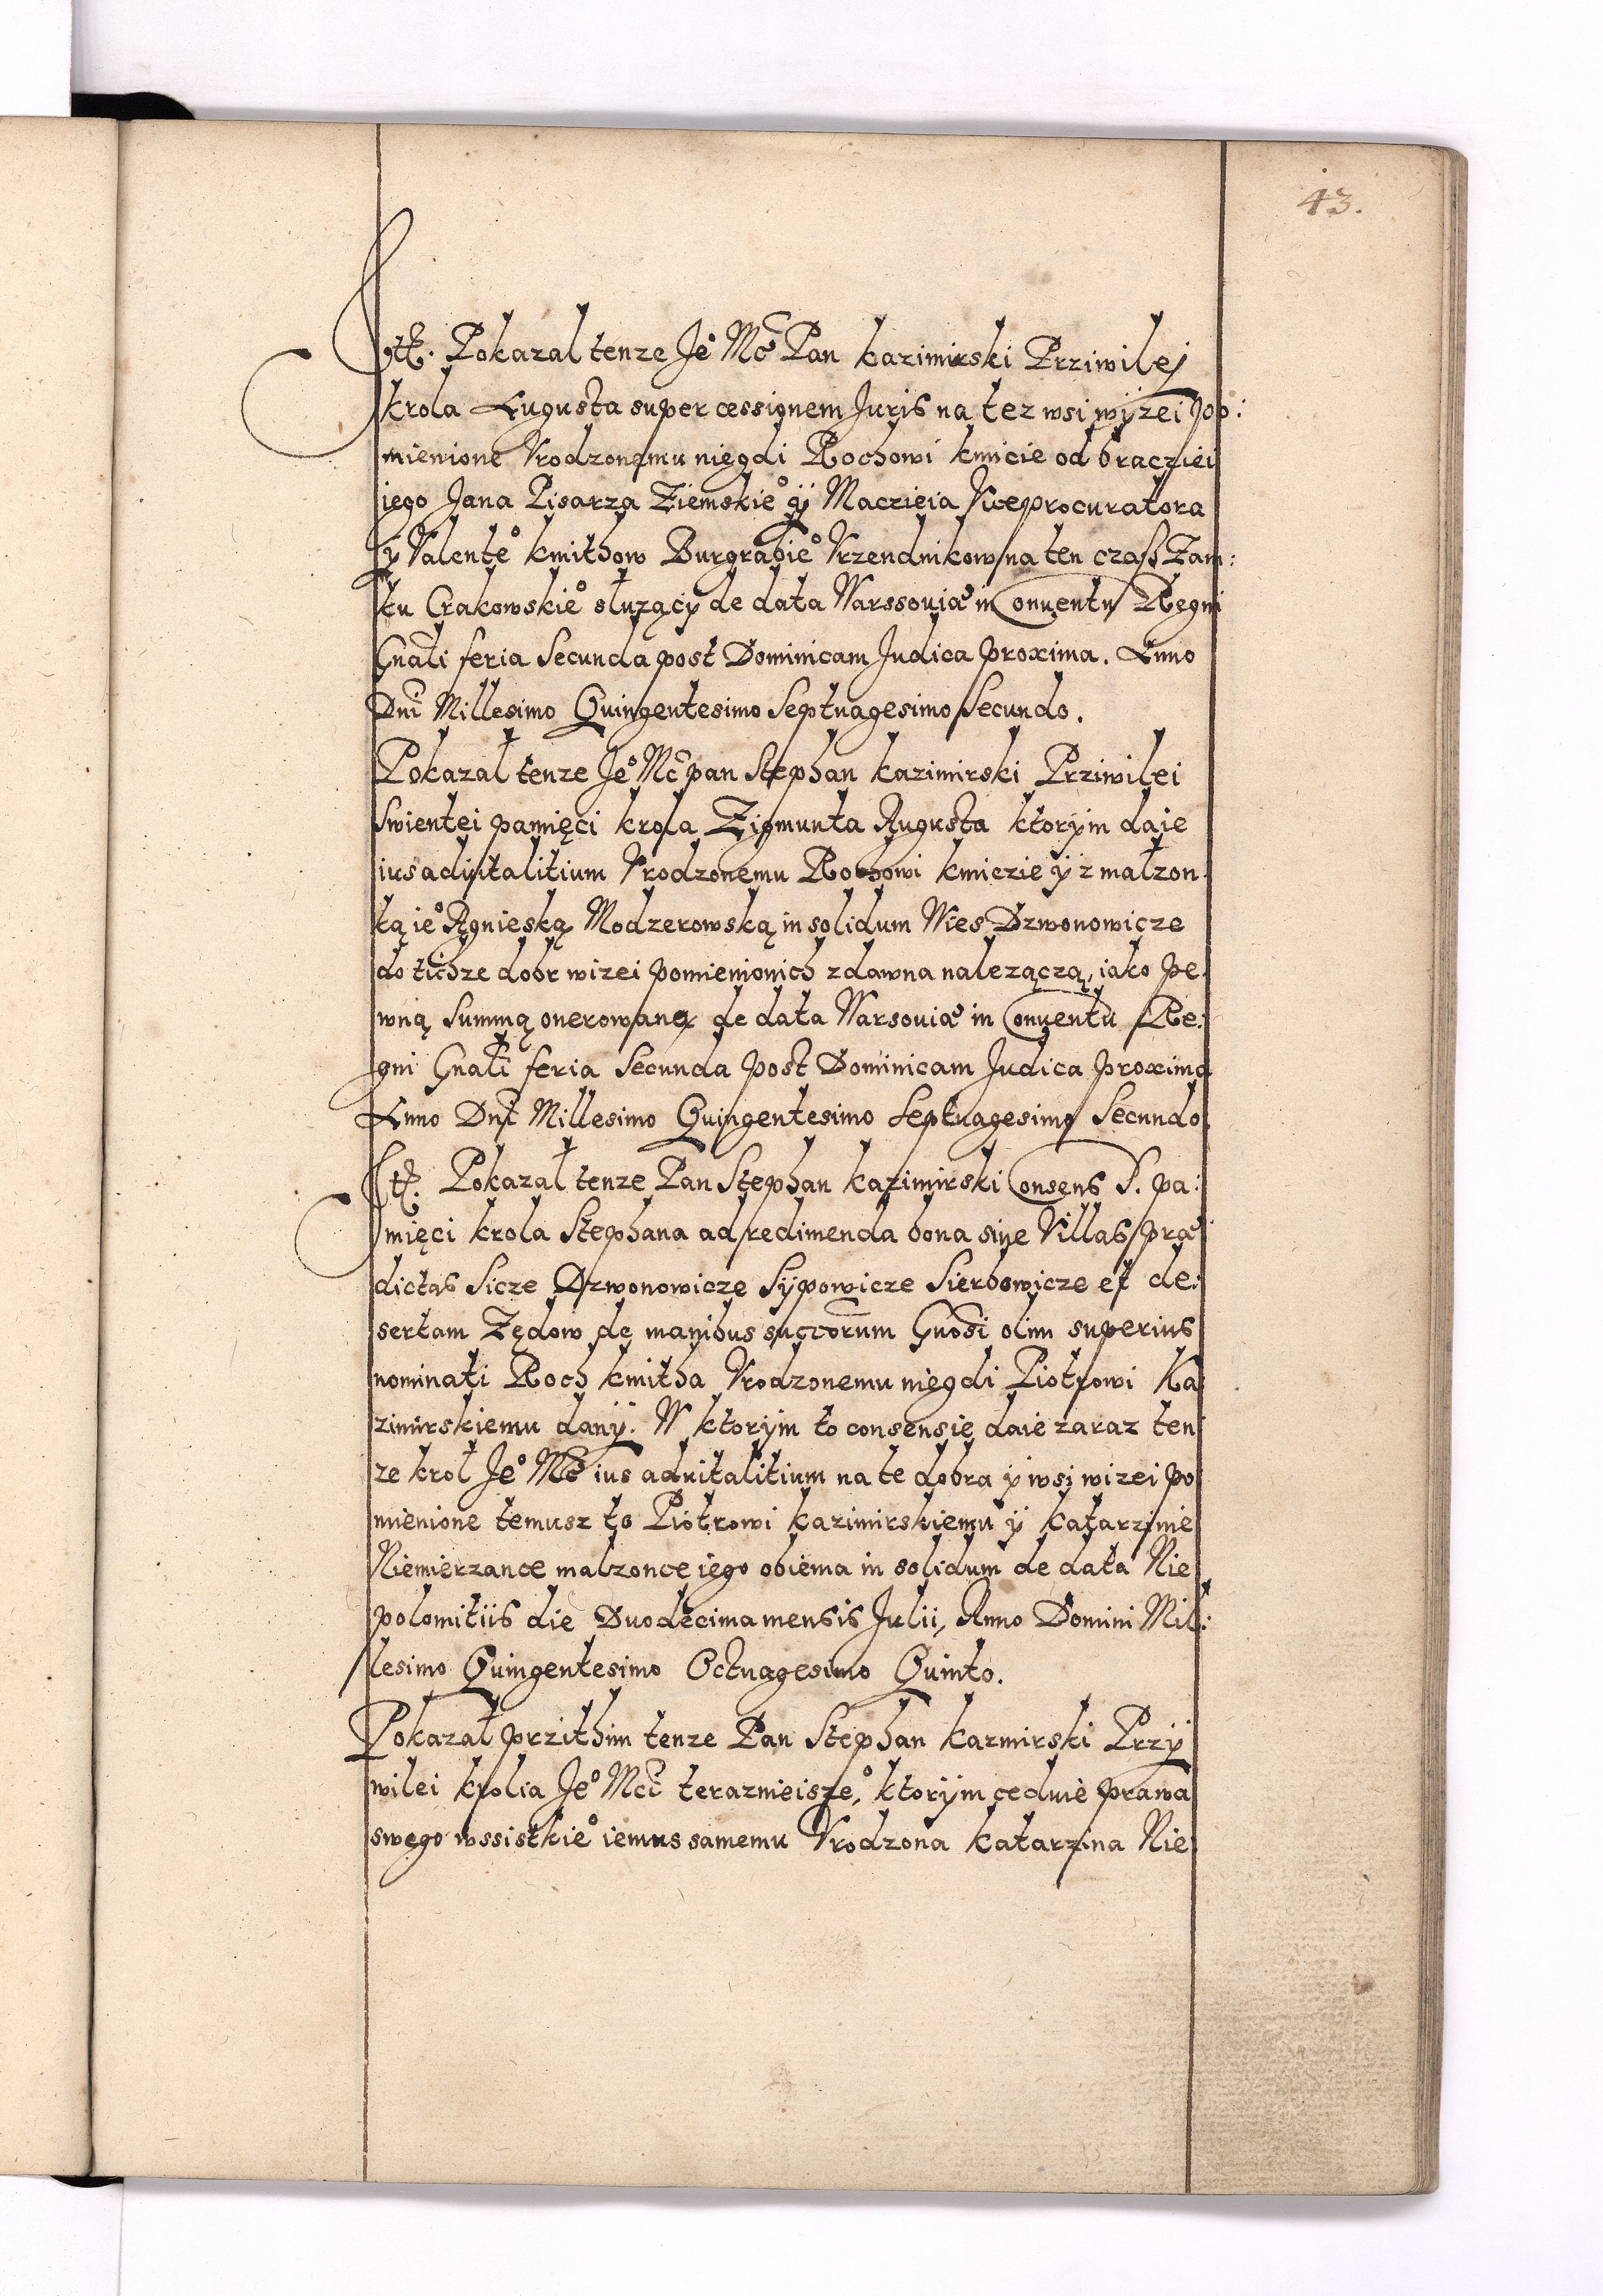 43.
Itẽ. Pokazal tenze Jeº Mč Pan kazimirski Prziwilej
krola Augusta super cessionem Juris na tez wsi wyzei po:
mienione Vrodzonemu niegdi Rochowi kmicie od braciei
iego Jana Pisarza Ziemskieº ÿ Maczieia Viceprocuratora
ÿ Valenteº kmithow Burgrabieº Vrzendnikow na ten czass Zam:
ku Crakowskieº słuzącÿ de data Warssouiæ in Conuentu Regni
Gnãli feria Secunda post Dominicam Judica proxima. Anno
Dnĩ Millesimo Quingentesimo Septuagesimo Secundo.
Pokazał tenze Jeº Mč pan Stephan kazimirski Prziwilei
swientei pamięci krola Zigmunta Augusta ktorÿm daie
ius aduitalitium Vrodzonemu Rochowi kmiczie ÿ z małzon
ką ieº Agnieską Modzerowską in solidum Wies Dzwonowicze
do tichze dobr wizei pomienionich zdawna nalezączą, iako pe
wną summą onerowaną de data Warsouiæ in Conuentu Re:
gni Gnãli feria Secunda post Dominicam Judica proxima
Anno Dnĩ Millesimo Quingentesimo Septuagesimo Secundo
Itẽ. Pokazał tenze Pan Stephan kazimirski Consens S. pa:
mięci krola Stephana ad redimenda bona siue Villas præ
dictas Sicze Dzwonowicze Sÿpowicze Sierbowicze et de:
sertam Zędow de manibus succorum Gnõsi olim superius
nominati Roch kmitha Vrodzonemu niegdi Piotrowi Ka
zimirskiemu danÿ. W ktorÿm to consensie daie zaraz ten
ze krol Jeº Mč ius aduitalitium na te dobra ÿ wsi wizei po
mienione temusz to Piotrowi kazimirskiemu ÿ katarzinie
Niemierzance malzonce iego obiema in solidum de data Nie
polomitiis die Duodecima mensis Julii, Anno Domini Mil:
lesimo Quingentesimo Octuagesimo Quinto.
Pokazał przithim tenze Pan Stephan kazmirski Przÿ
wilei krolia Jeº Mči teraznieiszeº, ktorÿm ceduie prawa
swego wssistkieº iemus samemu Vrodzona katarzina Nie